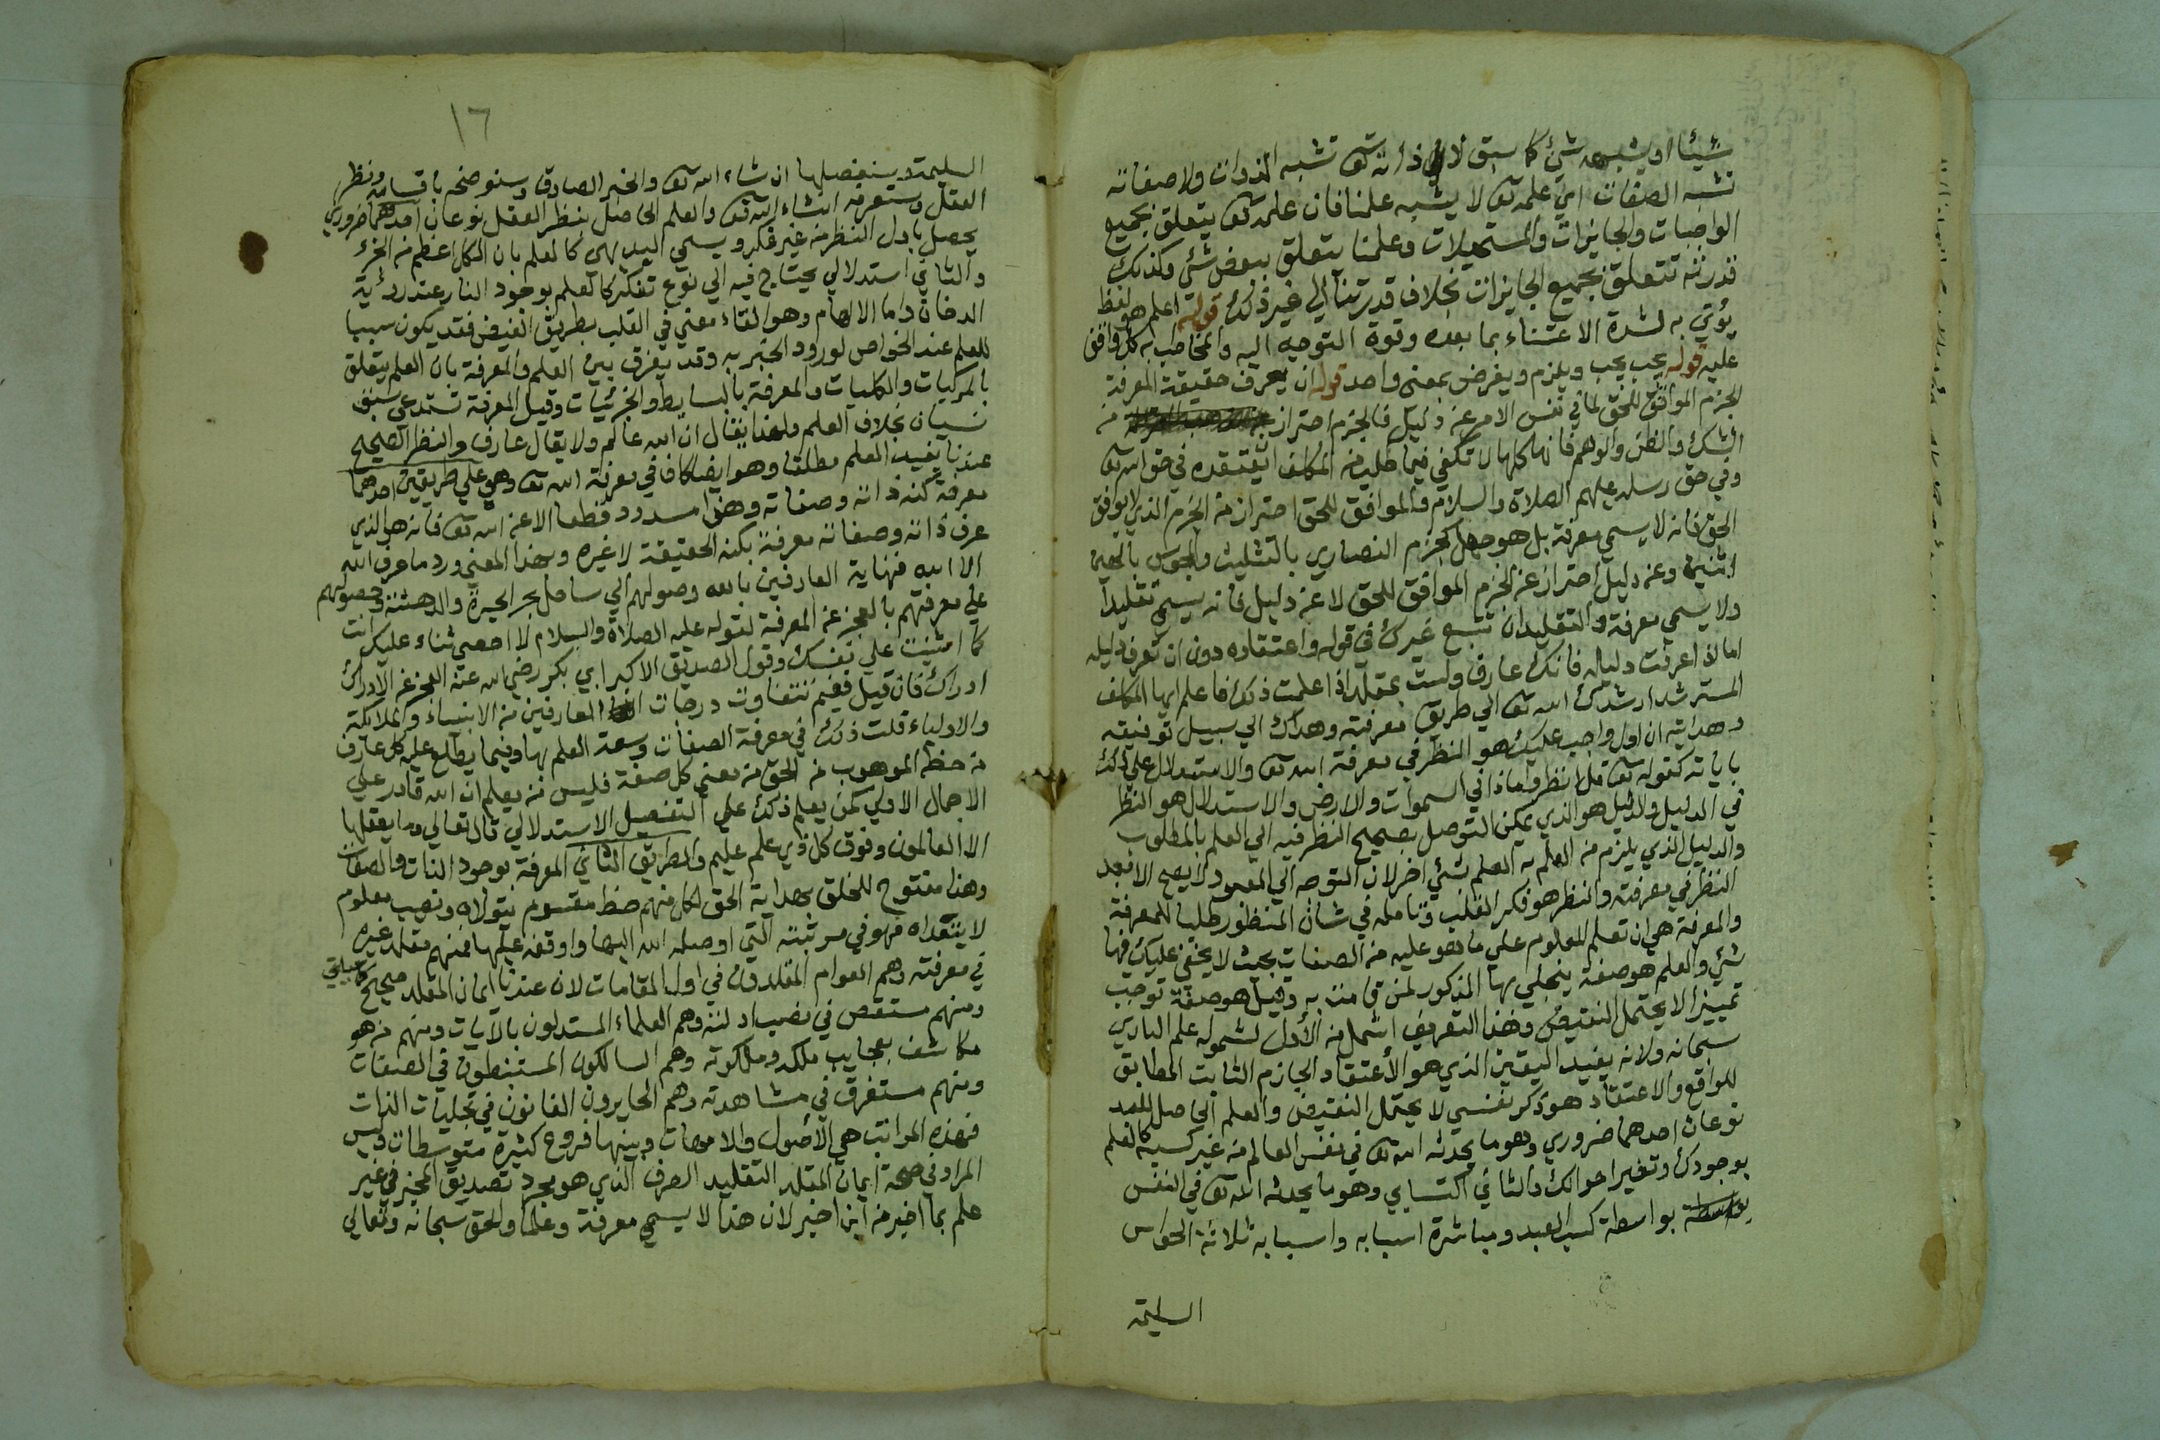 شيئا او يشبهه شيئ كما سبق لا ذاته تعا تشبه الذوات ولا صفاته
تشبه الصفات اي علمه تعا لا يشبه علمنا فان علمه تعا يتعلق بجميع
الواجبات والجايزات والمستحيلات وعلمنا يتعلق ببعض شئ وكذلك
قدرته تتعلق بجميع الجايزات بخلاف قدرتنا الي غير ذلك قوله اعلم هو لفظ
يؤتي به لشدة الاعتناء بما بعده وقوة التوجه اليه والمخاطب به كل واقف
عليه قوله يجب يجب ويلزم ويفرض بمعنى واحد قوله ان يعرف حقيقة المعرفة
الجزم الموافق للحق لما في نفس الامر عن دليل فالجزم احتراز من
الشك والظن والوهم فانها كلها لا تكفي فيما طلب من المكلف ان يعتقده في حق الله تعا
وفي حق رسله عليهم الصلاة والسلام والموافق للحق احتراز من الجزم الذي لا يوافق
الحق فانه لا يسمي معرفة بل هو جهل كجزم النصاري بالتثليث والمجوس بالهين
اثنين وعن دليل احتراز عن الجزم الموافق للحق لا عن دليل فانه يسمي تقليدا
ولا يسمي معرفة والتقليد ان تتبع غيرك في قوله واعتقاده دون ان تعرف دليله
اما اذا عرفت دليله فانك عارف ولست بمقلد اذا علمت ذلك فاعلم ايها المكلف
المسترشد ارشدك الله تعا الي طريق معرفته وهداك الي سبيل توفيقه
وهدايته ان اول واجب عليك هو النظر في معرفة الله تعا والاستدلال علي ذلك
باياته كقوله تعا قل انظروا ماذا في السموات والارض والاستدلال هو النظر
في الدليل والدليل هو الذي يمكن التوصل بصحيح النظر فيه الي العلم بالمطلوب
والدليل الذي يلزم من العلم به العلم بشئي اخر لان التوجه الي المعبود لا يصح الا بعد
النظر في معرفته والنظر هو فكر القلب وتامله في شان المنظور طلبا للمعرفة
والمعرفة هي ان تعلم المعلوم علي ما هو عليه من الصفات بحيث لا يخفي عليك فيها
شئ والعلم هو صفة ينجلي بها المذكور لمن قامت به وقيل هو صفة توجب
تمييزا لا يحتمل النقيض وهذا التعريف اشمل من الاول لشموله علم الباري
سبحانه ولانه يفيد اليقين الذي هو الاعتقاد الجازم الثابت المطابق
للواقع والاعتقاد هو ذكر نفسي لا يحتمل النقيض والعلم الحاصل للعبد
نوعان احدهما ضروري وهو ما يحدثه الله تعا في نفس العالم من غير كسبه كالعلم
بوجودك وتغير احوالك والثاني اكتسابي وهو ما يحدثه الله تعا في النفس
بواسطة كسب العبد ومباشرة اسبابه واسبابه ثلاثة الحواس
السليمة
١٦
السليمة وسنفصلها ان شاء الله تعا والخبر الصادق وسنوضحه باقسامه ونظر
العقل وستعرفه انشاء الله تعا والعلم الحاصل بنظر العقل نوعان احدهما ضروري
يحصل باول النظر من غير فكر ويسمي البديهى كالعلم بان الكل اعظم من الجزء
والثاني استدلالي يحتاج فيه الي نوع تفكر كالعلم بوجود النار عند رؤية
الدخان واما الالهام وهو القاء معني في القلب بطريق الفيض فقد يكون سببا
للعلم عند الخواص لورود الخبر به وقد يفرق بين العلم والمعرفة بان العلم يتعلق
بالمركبات والكليات والمعرفة بالبسايط والجزئيات وقيل المعرفة تستدعي سبق
نسيان بخلاف العلم ولهذا يقال ان الله عالم ولا يقال عارف والنظر الصحيح
عندنا يفيد العلم مطلقا وهو ايضا كاف في معرفة الله تعا وهي علي طريقين احدهما
معرفة كنه ذاته وصفاته وهذا مسدود قطعا الا عن الله تعا فانه هو الذي
عرف ذاته وصفاته معرفة بكنه الحقيقة لا غيره وبهذا المعني ورد ما عرف الله
الا الله فنهاية العارفين بالله وصولهم الي ساحل بحر الحيرة والدهشة وحصولهم
علي معرفتهم بالعجز عن المعرفة لقوله عليه الصلاة والسلام لا احصي ثناء عليك انت
كما اثنيت علي نفسك وقول الصديق الاكبر ابي بكر رضي الله عنه العجز عن الادراك
ادراك فان قيل ففيم تتفاوت درجات العارفين من الانبياء والملايكة
والاولياء قلت ذلك في معرفة الصفات وسعة العلم بها وفيما يطلع عليه كل عارف
من حظه الموهوب من الحق من معني كل صفة فليس من يعلم ان الله قادر علي
الاجمال الاولي كمن يعلم ذلك علي التفصيل الاستدلالي قال تعالي وما يعقلها
الا العالمون وفوق كل ذي علم عليم والطريق الثاني المعرفة بوجود الذات والصفات
وهذا مفتوح للخلق بهداية الحق لكل منهم حظ مقسوم يتولاه ونصيب معلوم
لا يتعداه فهو في مرتبته التي اوصله الله اليها واوقفه عليها فمنهم مقلد غيره
في معرفته وهم العوام المقلدون في اول المقامات لان عندنا ايمان المقلد صحيح كما سياتي
ومنهم مستقص في نصب ادلته وهم العلماء المستدلون بالايات ومنهم من هو
مكاشف بعجايب ملكه وملكوته وهم السالكون المستنبطون في الصفات
ومنهم مستغرق في مشاهدته وهم الحايرون الفانون في تجليات الذات
فهذه المراتب هي الاصول والامهات وبينها فروع كثيرة متوسطات وليس
المراد في صحة ايمان المقلد التقليد الصرف الذي هو مجرد تصديق المخبر في غير
علم بما اخبر من اين اخبر لان هذا لا يسمي معرفة وعلما والحق سبحانه وتعالي